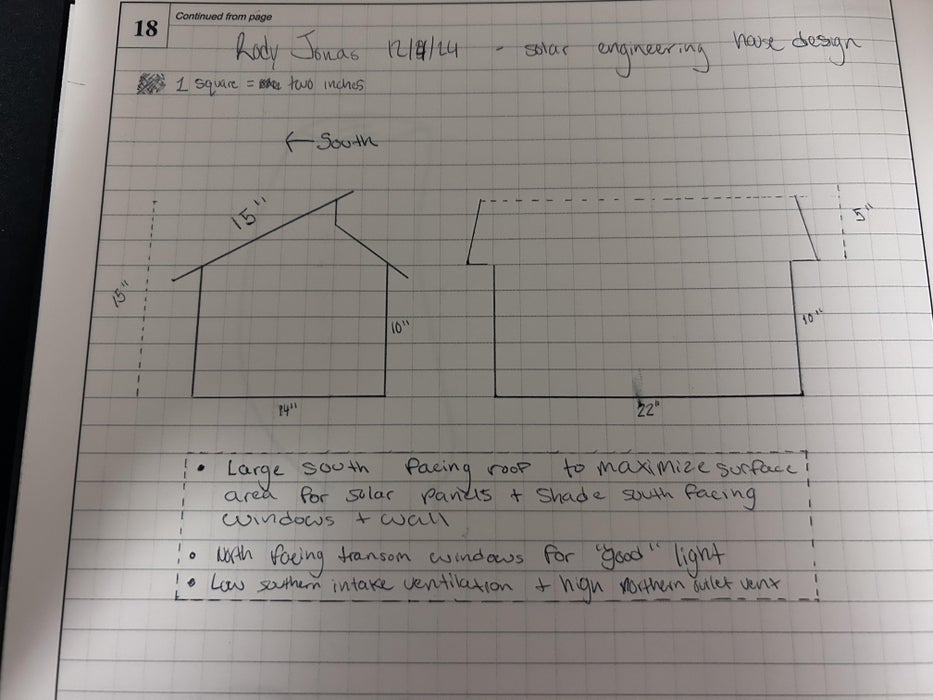 18
Continued from page
Rody Jonas 12/9/24 - solar engineering house design
1 square = two inches
← South
15"
5"
15"
10"
10"
14"
22"
• Large south facing roof to maximize surface
area for solar panels + shade south facing
windows + wall
• North facing transom windows for "good" light
• Low southern intake ventilation + high northern outlet vent